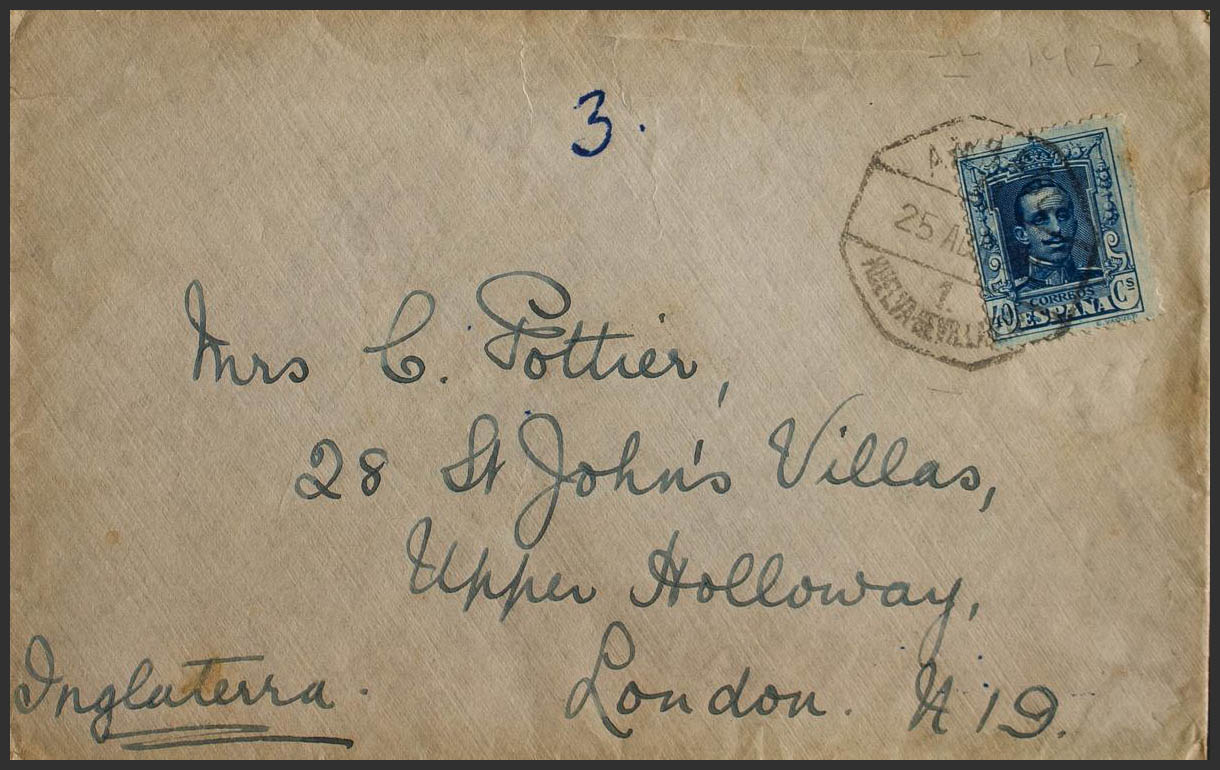 3.
25
1.
HUELVA SEVILLA
CORREOS
40 ESPAÑA Cs
Mrs C. Pottier,
28 St John's Villas,
Upper Holloway,
London. N 19.
Inglaterra.